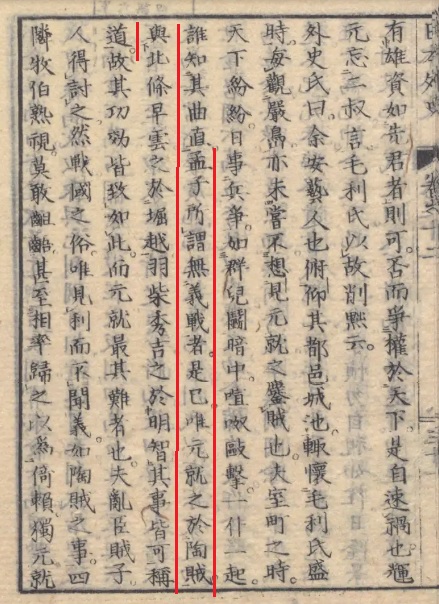 有雄資如先君者則可否而爭權於天下是自速禍也輝
元忘三叔言毛利氏以故削黜云
外史氏曰余安藝人也俯仰其都邑城池輙懷毛利氏盛
時每觀嚴島亦未嘗不想見元就之鏖賊也夫室町之時
天下紛紛日事兵爭如群兒鬪暗中喧呶毆擊一仆一起
誰知其曲直孟子所謂無義戰者是已唯元就之於陶賊
與北條早雲之於堀越羽柴秀吉之於明智其事皆可稱
道故其功効皆致如此而元就最其難者也夫亂臣賊子
人得討之然戰國之俗唯見利而不聞義如陶賊之事四
隣牧伯熟視莫敢齟齬甚至相率歸之以為倚賴獨元就